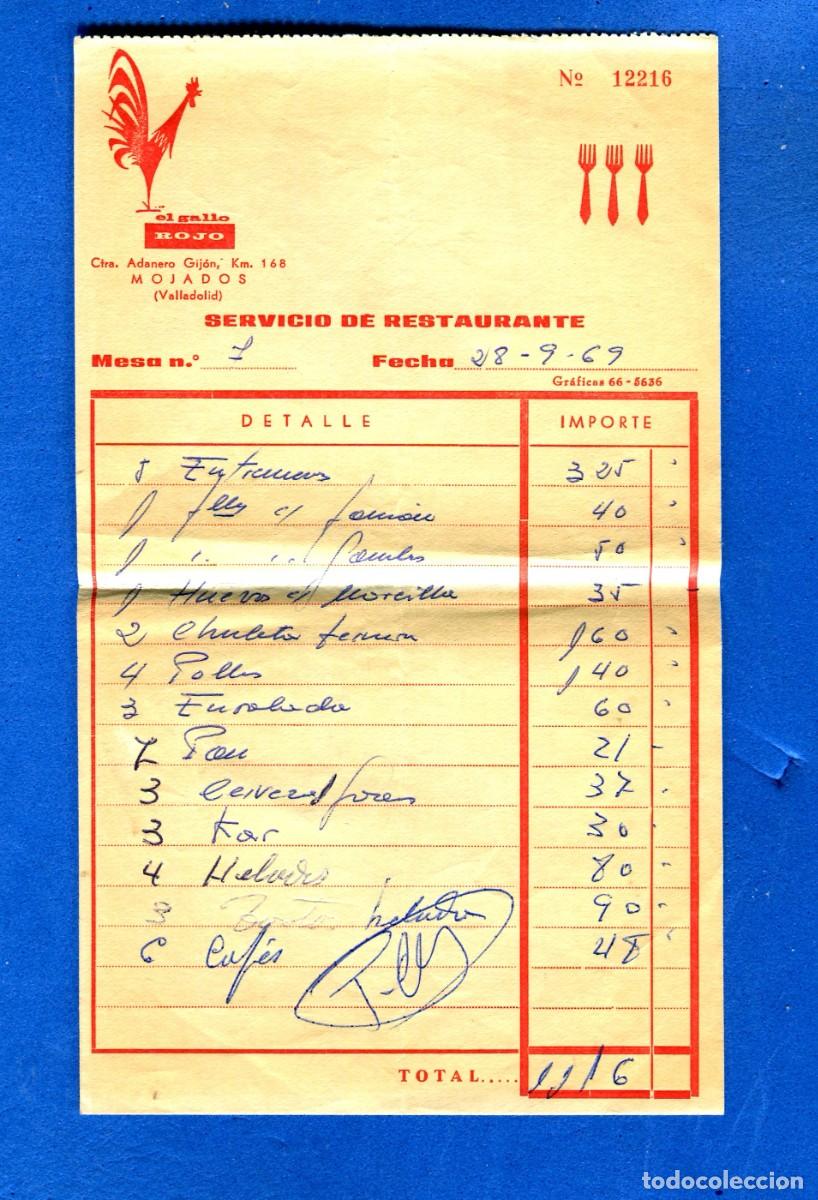 Nº 12216
el gallo
ROJO
Ctra. Adanero Gijón, Km. 168
MOJADOS
(Valladolid)
SERVICIO DE RESTAURANTE
Mesa n.º 7 Fecha 28-9-69
Gráficas 66 - 5636
DETALLE IMPORTE
5 Entremeses 325
1 c/ Jamón 40
1 " " Gambas 50
1 Huevos c/ Morcilla 35
2 Chuleta ternera 160
4 Pollos 140
3 Ensalada 60
7 Pan 21
3 Cerveza 37
3 Kas 30
4 Helados 80
3 helada 90
6 Cafés 48
TOTAL..... 1116
todocoleccion